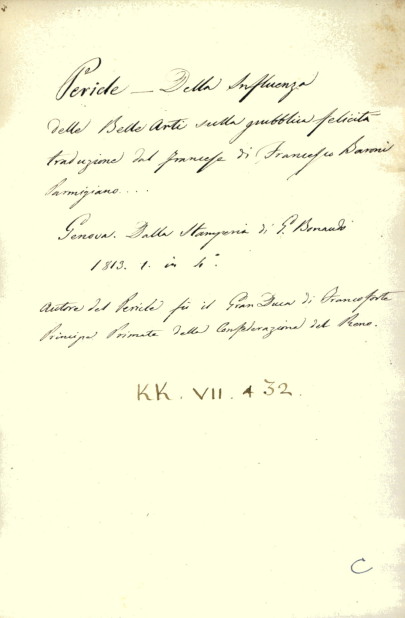 Pericle — Della Influenza
delle Belle Arti sulla pubblica felicità
traduzione dal francese di Francesco Baroni
Parmigiano....
Genova. Dalla Stamperia di G. Bonaudo
1813. 1. in 4°.
Autore del Pericle fù il Gran Duca di Francoforte
Principe Primate della Confederazione del Reno.
KK. VII. 4 32.
C